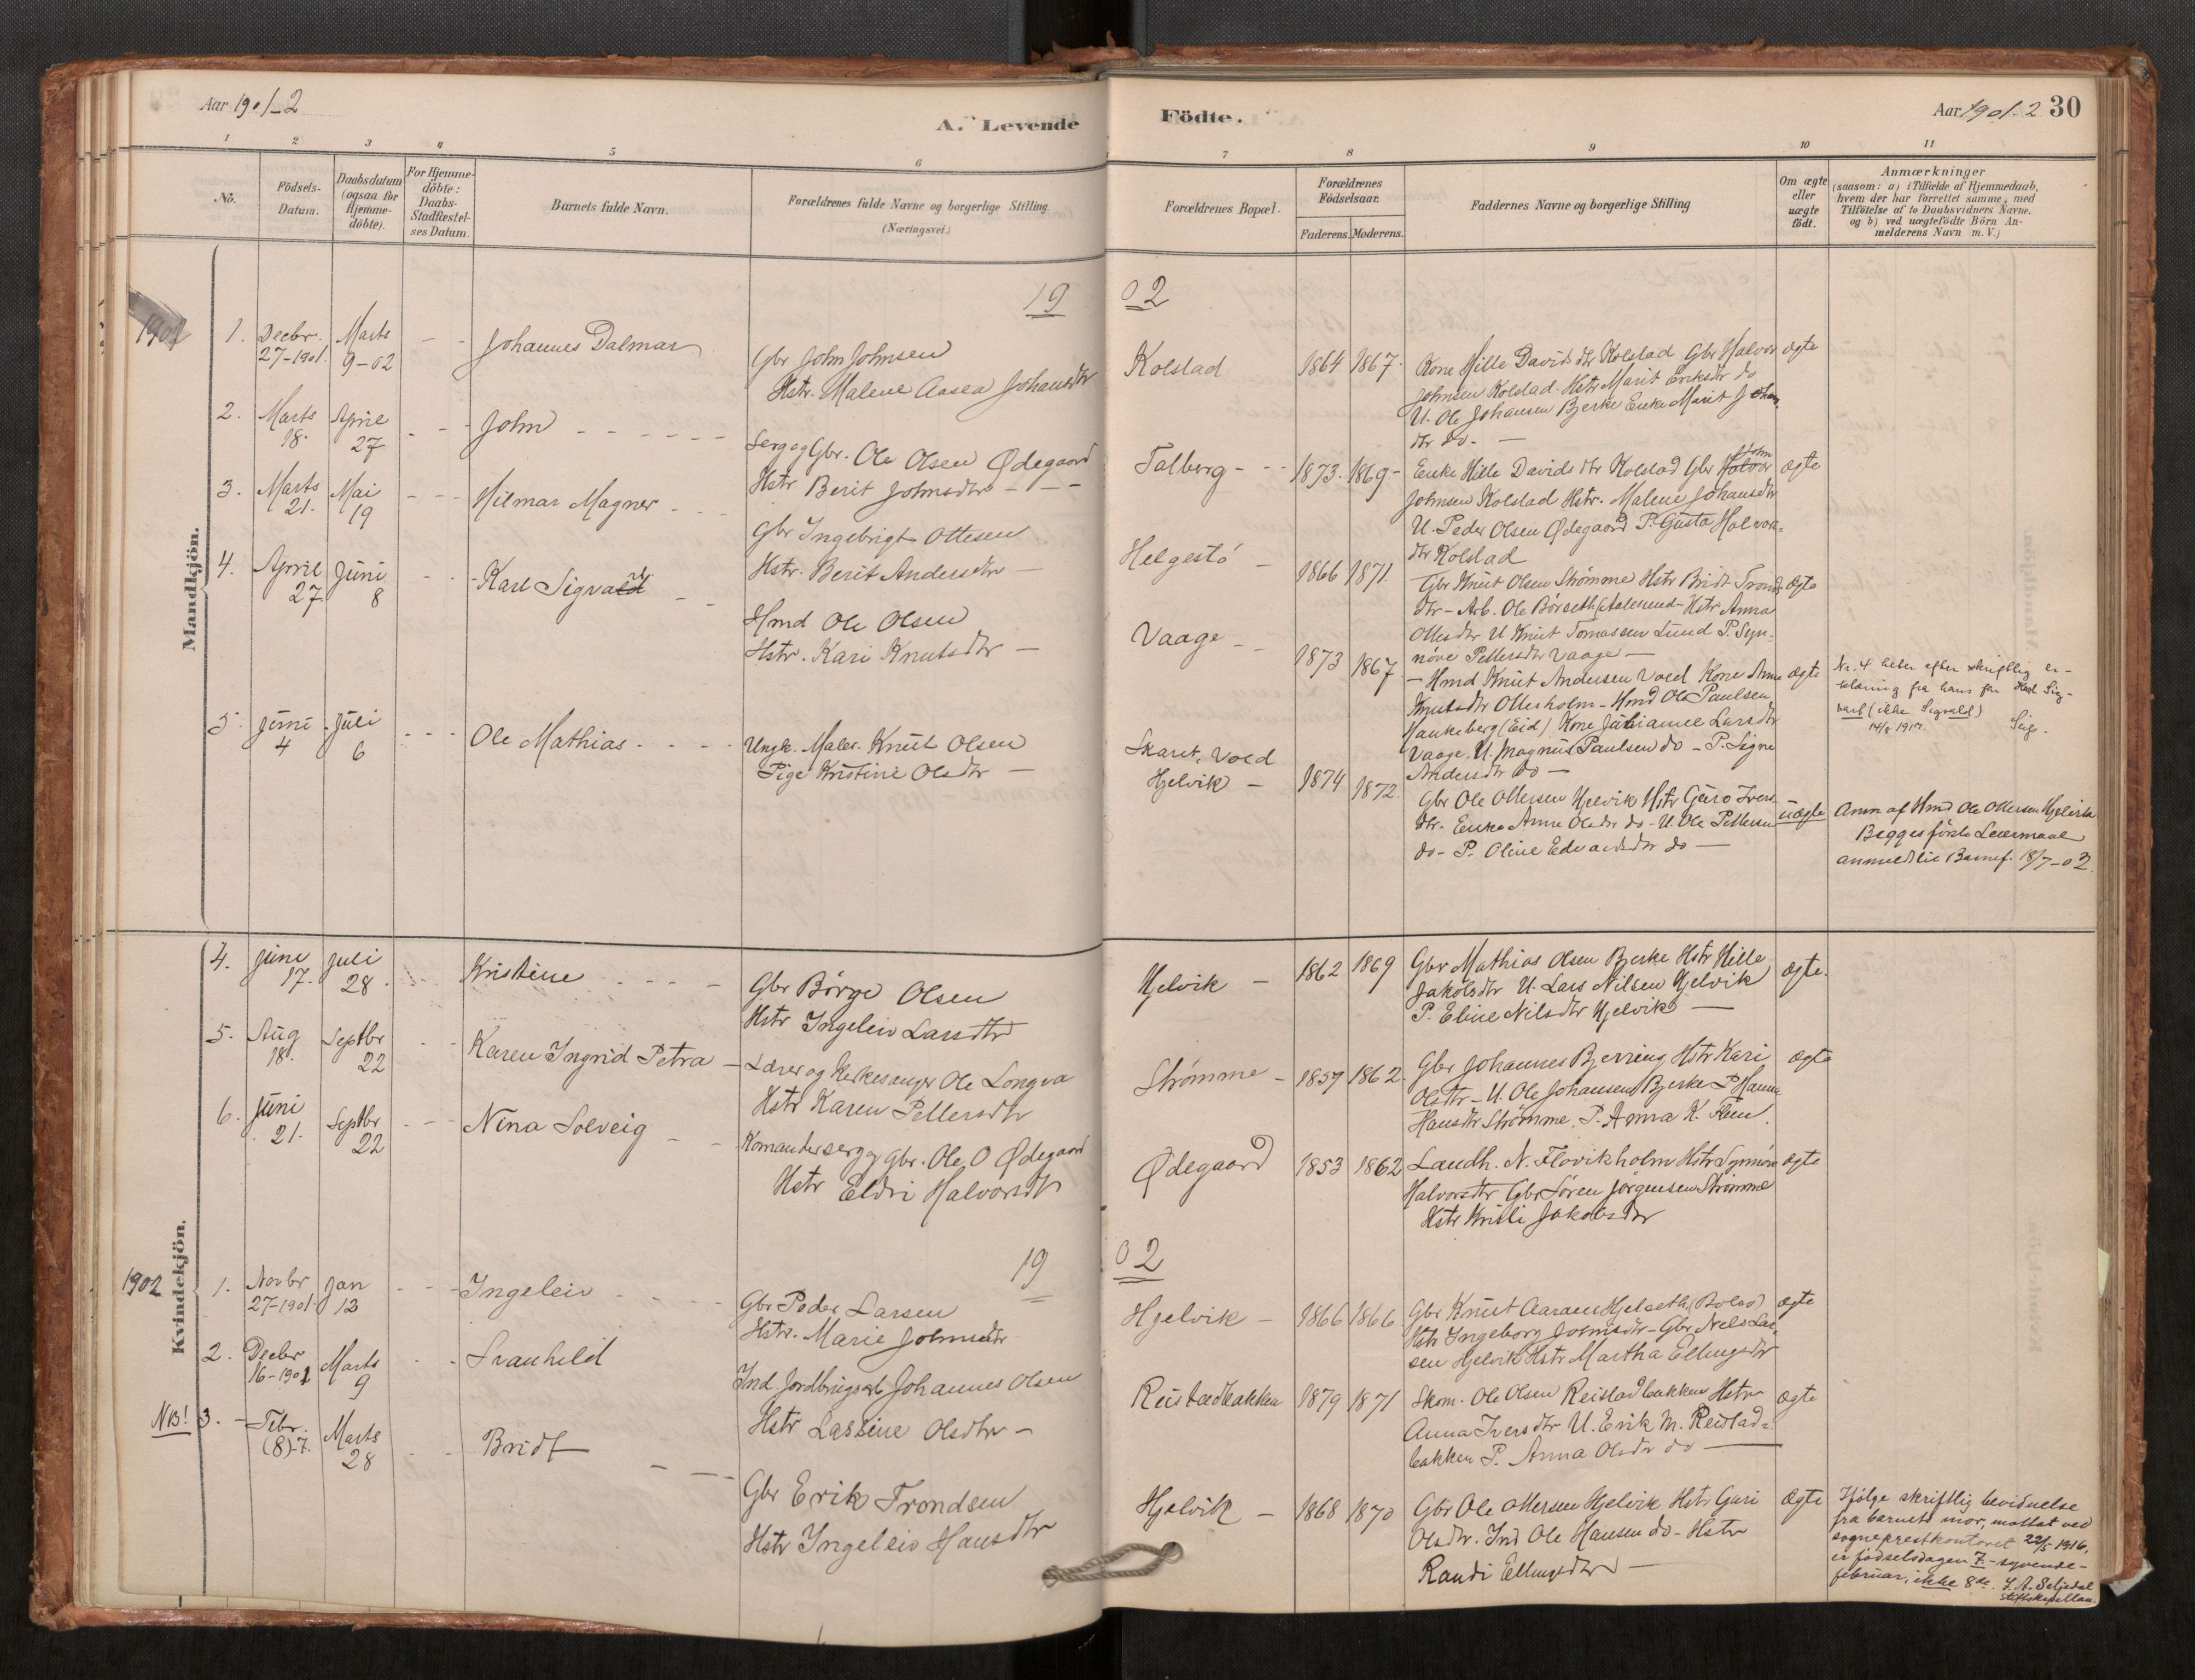 Aar 1901-2
A. Levende
1 2 3 4 5 6
No.
Födsels-
Datum.
Daabsdatum
(ogsaa for
Hjemme-
döbte).
For Hjemme-
döbte:
Daabs-
Stadfæstel-
ses Datum.
Barnets fulde Navn.
Forældrenes fulde Navne og borgerlige Stilling
(Næringsvei.)
Mandkjön.
19
1902
1. Decbr. 27-1901. Marts 9-02 Johannes Dalmar
Gbr John Johnsen
Hstr. Malene Aasea Johansdtr
2. Marts 18. April 27 John
Serg og Gbr. Ole Olsen Ødegaard
Hstr Berit Johnsdtr
3. Marts 21. Mai 19 Hilmar Magner
Gbr Ingebrigt Ottesen
Hstr. Berit Andersdtr
4. April 27 Juni 8 Karl Sigvald
Hmd Ole Olsen
Hstr. Kari Knutsdtr
5. Juni 4 Juli 6 Ole Mathias
Ungk. Maler. Knut Olsen
Pige Kristine Olsdtr
Kvindekjön.
4. Juni 17. Juli 28. Kristine
Gbr Börge Olsen
Hstr Ingeleiv Larsdtr
5. Aug 18. Septbr 22 Karen Ingrid Petra
Lærer og Kirkesanger Ole Longva
Hstr Karen Pettersdtr
6. Juni 21. Septbr 22 Nina Solveig
Komandersergog Gbr. Ole O Ødegaard
Hstr Eldri Halvorsdtr
19
1902
1. Novbr 27-1901. Jan 12 Ingeleiv
Gbr Peder Larsen
Hstr. Marie Johnsdtr
2. Decbr 16-1901 Marts 9 Svanhild
Ind. Jordbrugsarb Johannes Olsen
Hstr Lassine Olsdtr
NB! 3. Febr. (8)-7. Marts 28 Bridt
Gbr Erik Trondsen
Hstr Ingeleiv Hansdtr
Födte.
Aar 1901-2. 30
7 8 9 10 11
Forældrenes Bopæl.
Forældrenes
Födselsaar.
Faderens. Moderens.
Faddernes Navne og borgerlige Stilling
Om ægte
eller
uægte
födt.
Anmærkninger
(saasom: a) i Tilfælde af Hjemmedaab,
hvem der har forrettet samme, med
Tilföielse af to Daabsvidners Navne.
og b) ved uægtefödte Börn An-
melderens Navn m. V.)
02
Kolstad 1864 1867. Kone Hille Davidsdtr Kolstad Gbr Halvor ægte
Johnsen Kolstad. Hstr Marit Eriksdtr do
U. Ole Johansen Bjerke Enke Marit Johans
dtr do.
Talberg 1873. 1869 Enke Hille Davidsdtr Kolstad Gbr Halvor John ægte
Johnsen Kolstad Hstr. Malene Johansdtr
U. Peder Olsen Ødegaard P. Gusta Halvors=
dtr Kolstad
Helgestö 1866 1871. Gbr Knut Olsen Strömme Hstr Bridt Tronds ægte
dtr - Arb. Ole Börseth (Aalesund - Hstr Anna
Ottesdtr U Knut Tomassen Lund P. Syn-
növe Pettersdtr Vaage
Vaage 1873 1867 Hmd Knut Andersen Voed Kone Anne ægte
Knutsdtr Otterholm - Hmd Ole Paulsen
Haukeberg (Eid) Kone Julianne Larsdtr
Vaage. U. Magnus Paulsen do - P. Signe
Andersdtr do
Nr. 4 heter efter skriftlig er-
klæring fra hans far Karl Sig-
vart (ikke Sigvald)
14/8 1917.
Skaret, Voed
Hjelvik 1874 1872. Gbr Ole Ottersen Hjelvik Hstr Guro Ivers
dtr. Enke Anne Olsdtr do - U. Ole Pettersen uægte
do - P. Oline Edvardsdtr do
Anm af Hmd Ole Ottersen Hjelvik
Begges förste Leiermaal
anmeldt til Barnef. 18/7-02.
Hjelvik 1862 1869 Gbr Mathias Olsen Bjerke Hstr Hille ægte.
Jakobsdtr U. Lars Nilsen Hjelvik
P. Eline Nilsdtr Hjelvik
Strømme 1857 1862. Gbr Johannes Bjerring Hstr Kari ægte
Olsdtr - U. Ole Johansen Bjerke P Hanna
Hansdtr Strømme. P. Anna K.
Ødegaard 1853 1862 Landh. N. Flovikholm Hstr Synnöve ægte
Halvorsdtr Gbr Sören Jörgensen Strömme
Hstr Jakobsdtr
02
Hjelvik 1866 1866. Gbr Knut Aarsen Hjelseth (Bolsö) ægte
Hstr Ingeborg Johnsdtr - Gbr Nels Lar-
sen Hjelvik Hstr Martha Ellingsdtr
Reistadbakken 1879 1871 Skom. Ole Olsen Reistadbakken Hstr ægte
Anna Iversdtr U. Erik M. Reistad=
bakken P. Anna Olsdtr do
Hjelvik 1868 1870 Gbr Ole Ottersen Hjelvik Hstr Guri ægte
Olsdtr. Ind Ole Hansen do - Hstr
Randi Ellingsdtr
Ifølge skriftlig bevidnelse
fra barnets mor, mottat ved
sogneprestkontoret 22/5 1916,
er fødselsdagen 7.-syvende-
februar, ikke 8de. L. A. Seljedal
stiftskapellan.